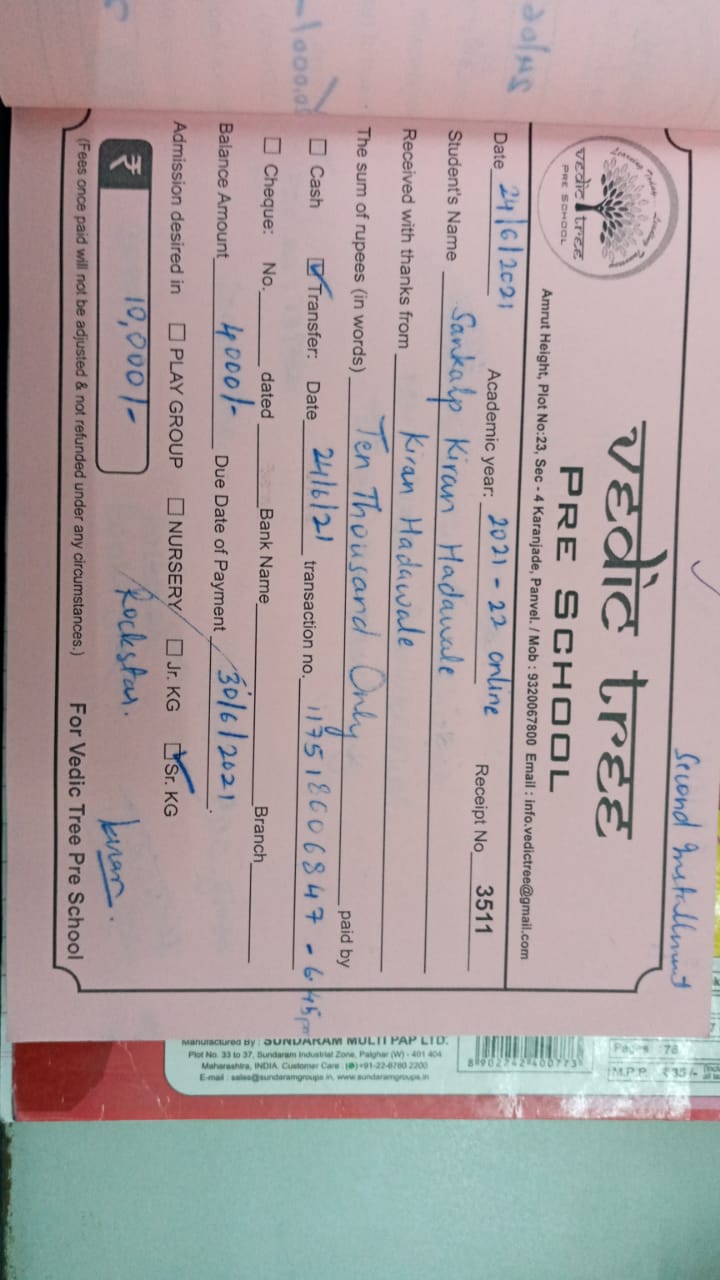 Second Installment
vedic tree
PRE SCHOOL
Learning Today, Leads
vedic tree
PRE SCHOOL
Amrut Height, Plot No:23, Sec - 4 Karanjade, Panvel. / Mob : 9320067800 Email : info.vedictree@gmail.com
Date 24/6/2021 Academic year: 2021-22 online Receipt No 3511
Student's Name Sankalp Kiran Hadawale
Received with thanks from Kiran Hadawale
The sum of rupees (in words) Ten Thousand Only paid by
Cash Transfer: Date 24/6/21 transaction no. 117518606847 - 6:45 pm
Cheque: No. dated Bank Name Branch
Balance Amount 4000/- Due Date of Payment 30/6/2021.
Admission desired in PLAY GROUP NURSERY Jr. KG Sr. KG
₹ 10,000/- Rockstar. kiran.
(Fees once paid will not be adjusted & not refunded under any circumstances.) For Vedic Tree Pre School
Pages : 76
M.P.P. ₹35/-
8 902742 400773
Manufactured By : SUNDARAM MULTI PAP LTD.
Plot No. 33 to 37, Sundaram Industrial Zone, Palghar (W) - 401 404
Maharashtra, INDIA. Customer Care : +91-22-6760 2200
E-mail : sales@sundaramgroups.in, www.sundaramgroups.in